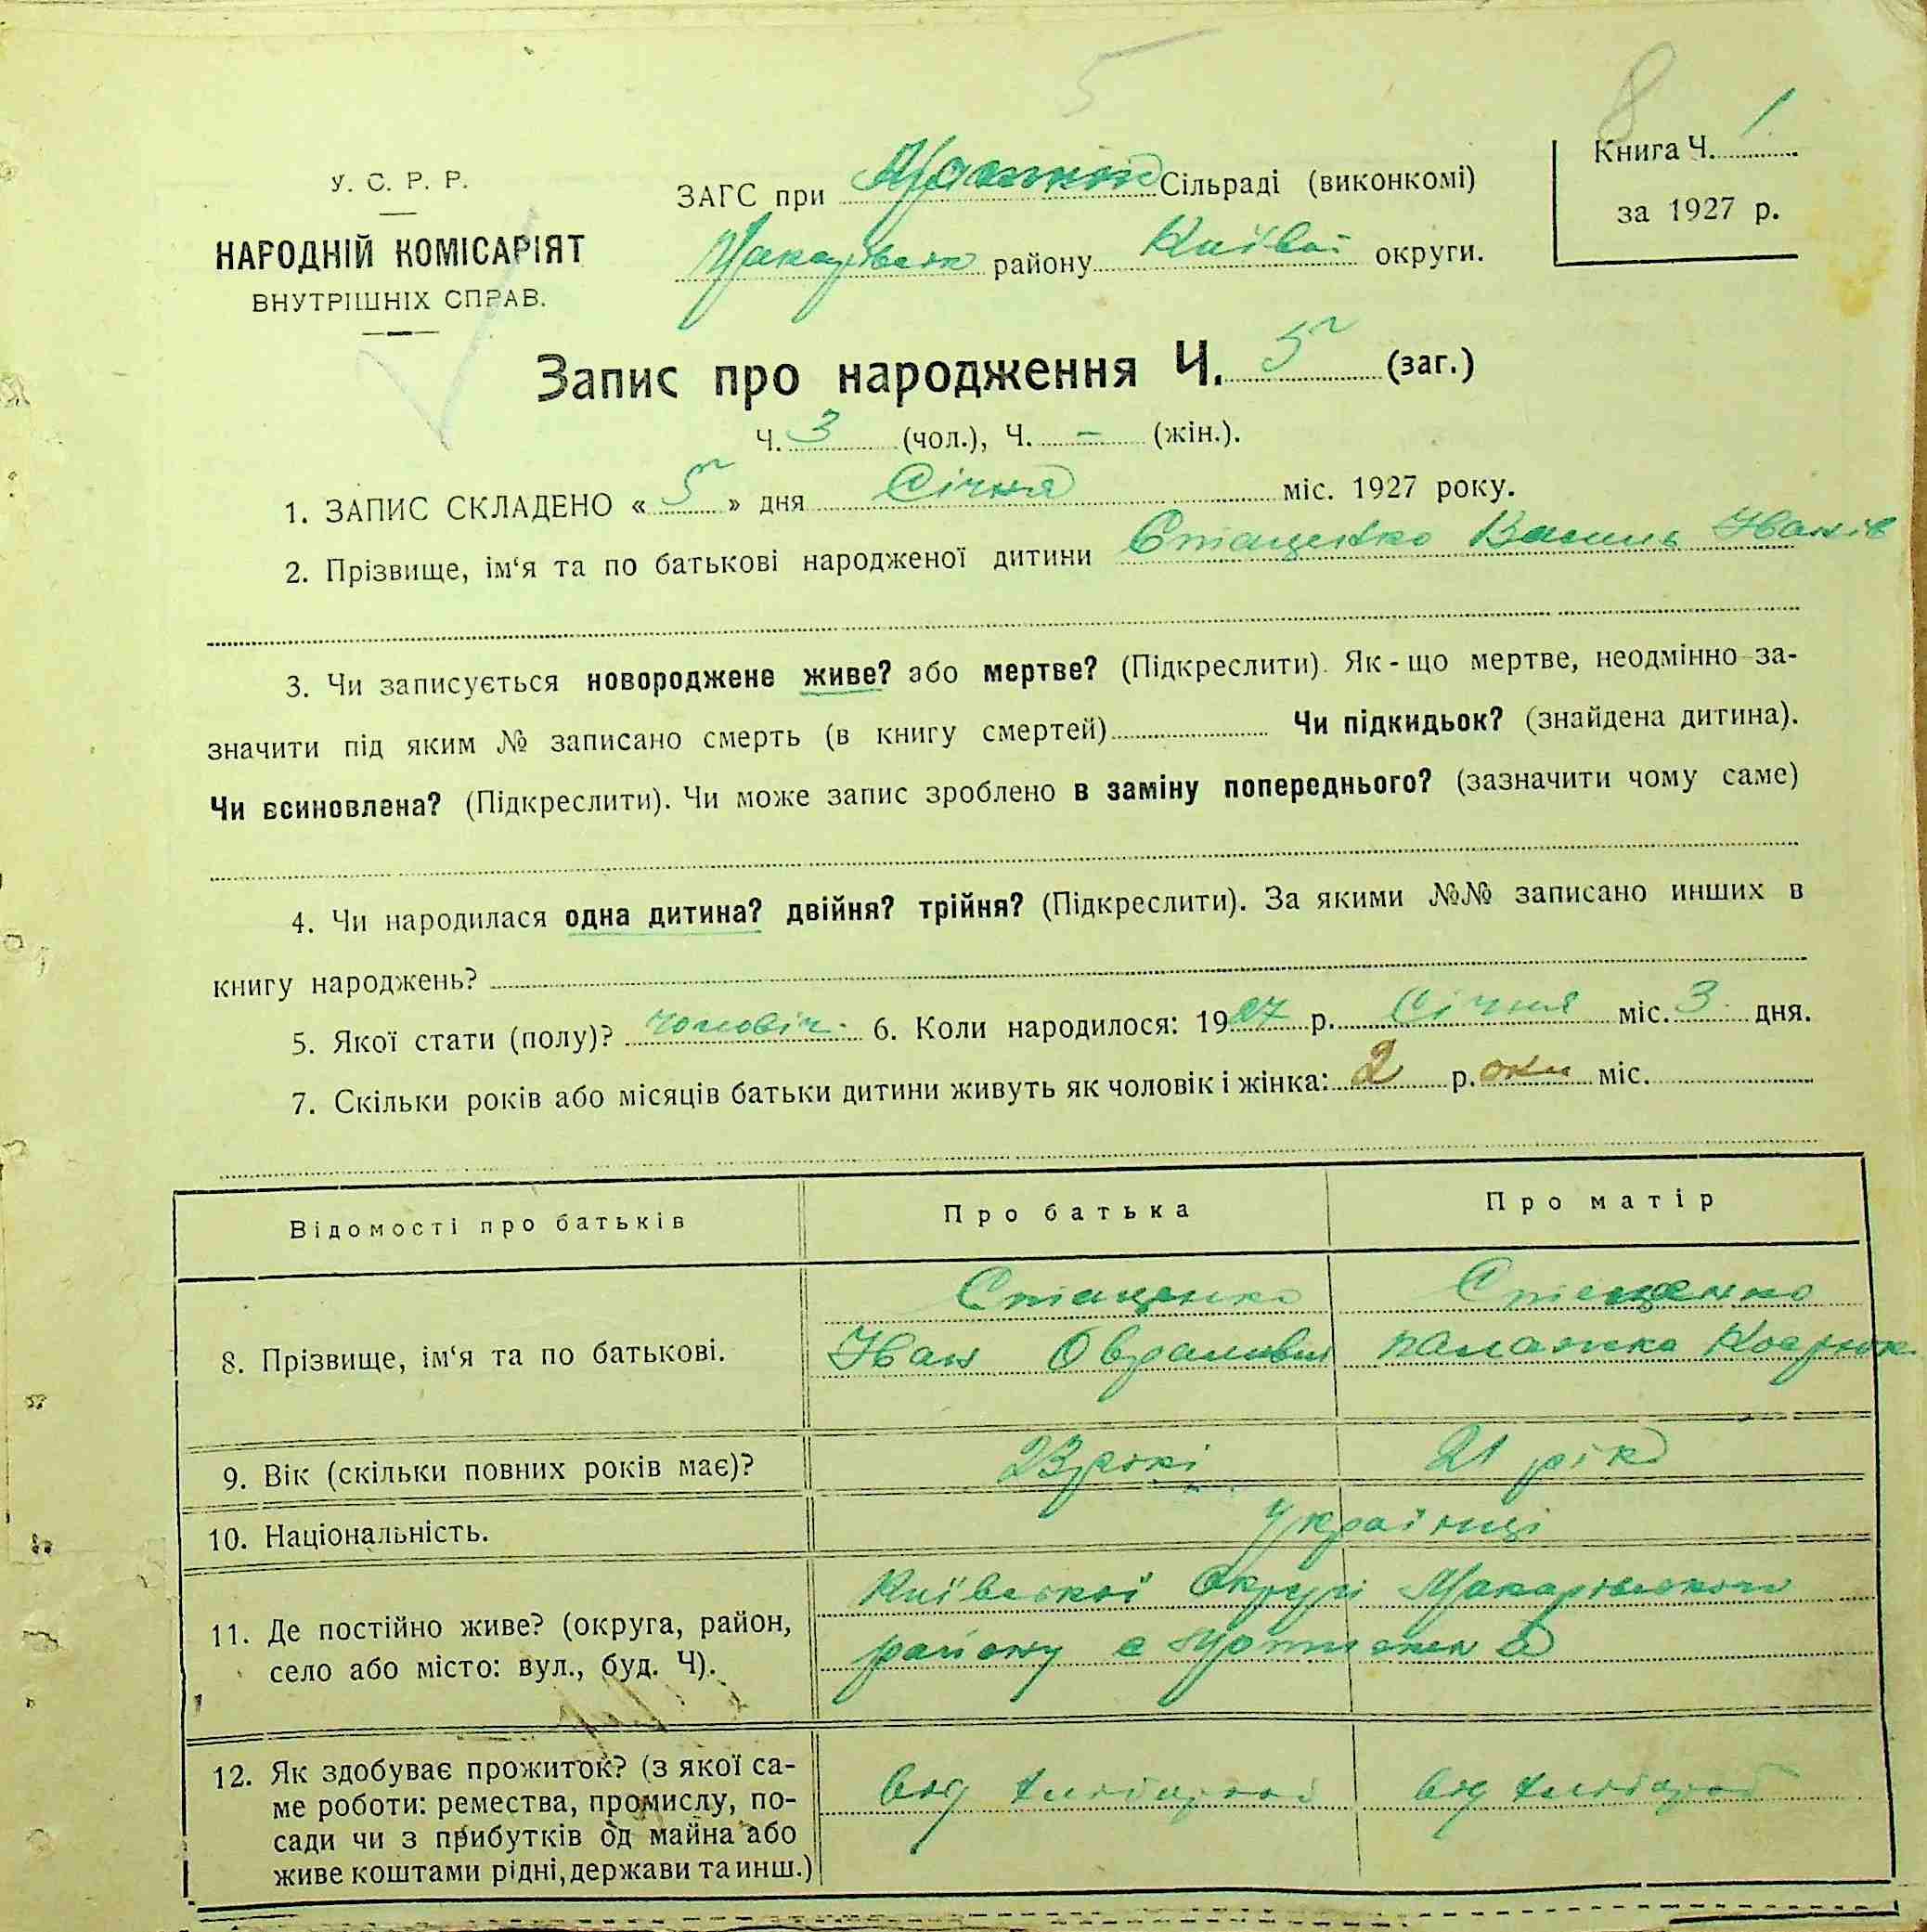 5
8
У. С. Р. Р.
НАРОДНІЙ КОМІСАРІЯТ
ВНУТРІШНІХ СПРАВ.
ЗАГС при Сільраді (виконкомі)
району Київськ округи.
Книга Ч. 1
за 1927 р.
Запис про народження Ч. 5 (заг.)
Ч. 3 (чол.), Ч. – (жін.).
1. ЗАПИС СКЛАДЕНО « 5 » дня Січня міс. 1927 року.
2. Прізвище, ім‘я та по батькові народженої дитини Стаценко Василь Іванів
3. Чи записується новороджене живе? або мертве? (Підкреслити). Як-що мертве, неодмінно за-
значити під яким № записано смерть (в книгу смертей) Чи підкидьок? (знайдена дитина).
Чи всиновлена? (Підкреслити). Чи може запис зроблено в заміну попереднього? (зазначити чому саме)
4. Чи народилася одна дитина? двійня? трійня? (Підкреслити). За якими №№ записано инших в
книгу народжень?
5. Якої стати (полу)? чоловіч. 6. Коли народилося: 1927 р. Січня міс. 3 дня.
7. Скільки років або місяців батьки дитини живуть як чоловік і жінка: 2 р. оки міс.
Відомості про батьків Про батька Про матір
8. Прізвище, ім‘я та по батькові.
Стаценко Стаценко
Іван
9. Вік (скільки повних років має)? 23 роки 21 рік
10. Національність. Українці
11. Де постійно живе? (округа, район,
село або місто: вул., буд. Ч).
Київської Округи Макарівського
району с
12. Як здобуває прожиток? (з якої са-
ме роботи: ремества, промислу, по-
сади чи з прибутків од майна або
живе коштами рідні, держави та инш.)
від хліборобс від хліборобс